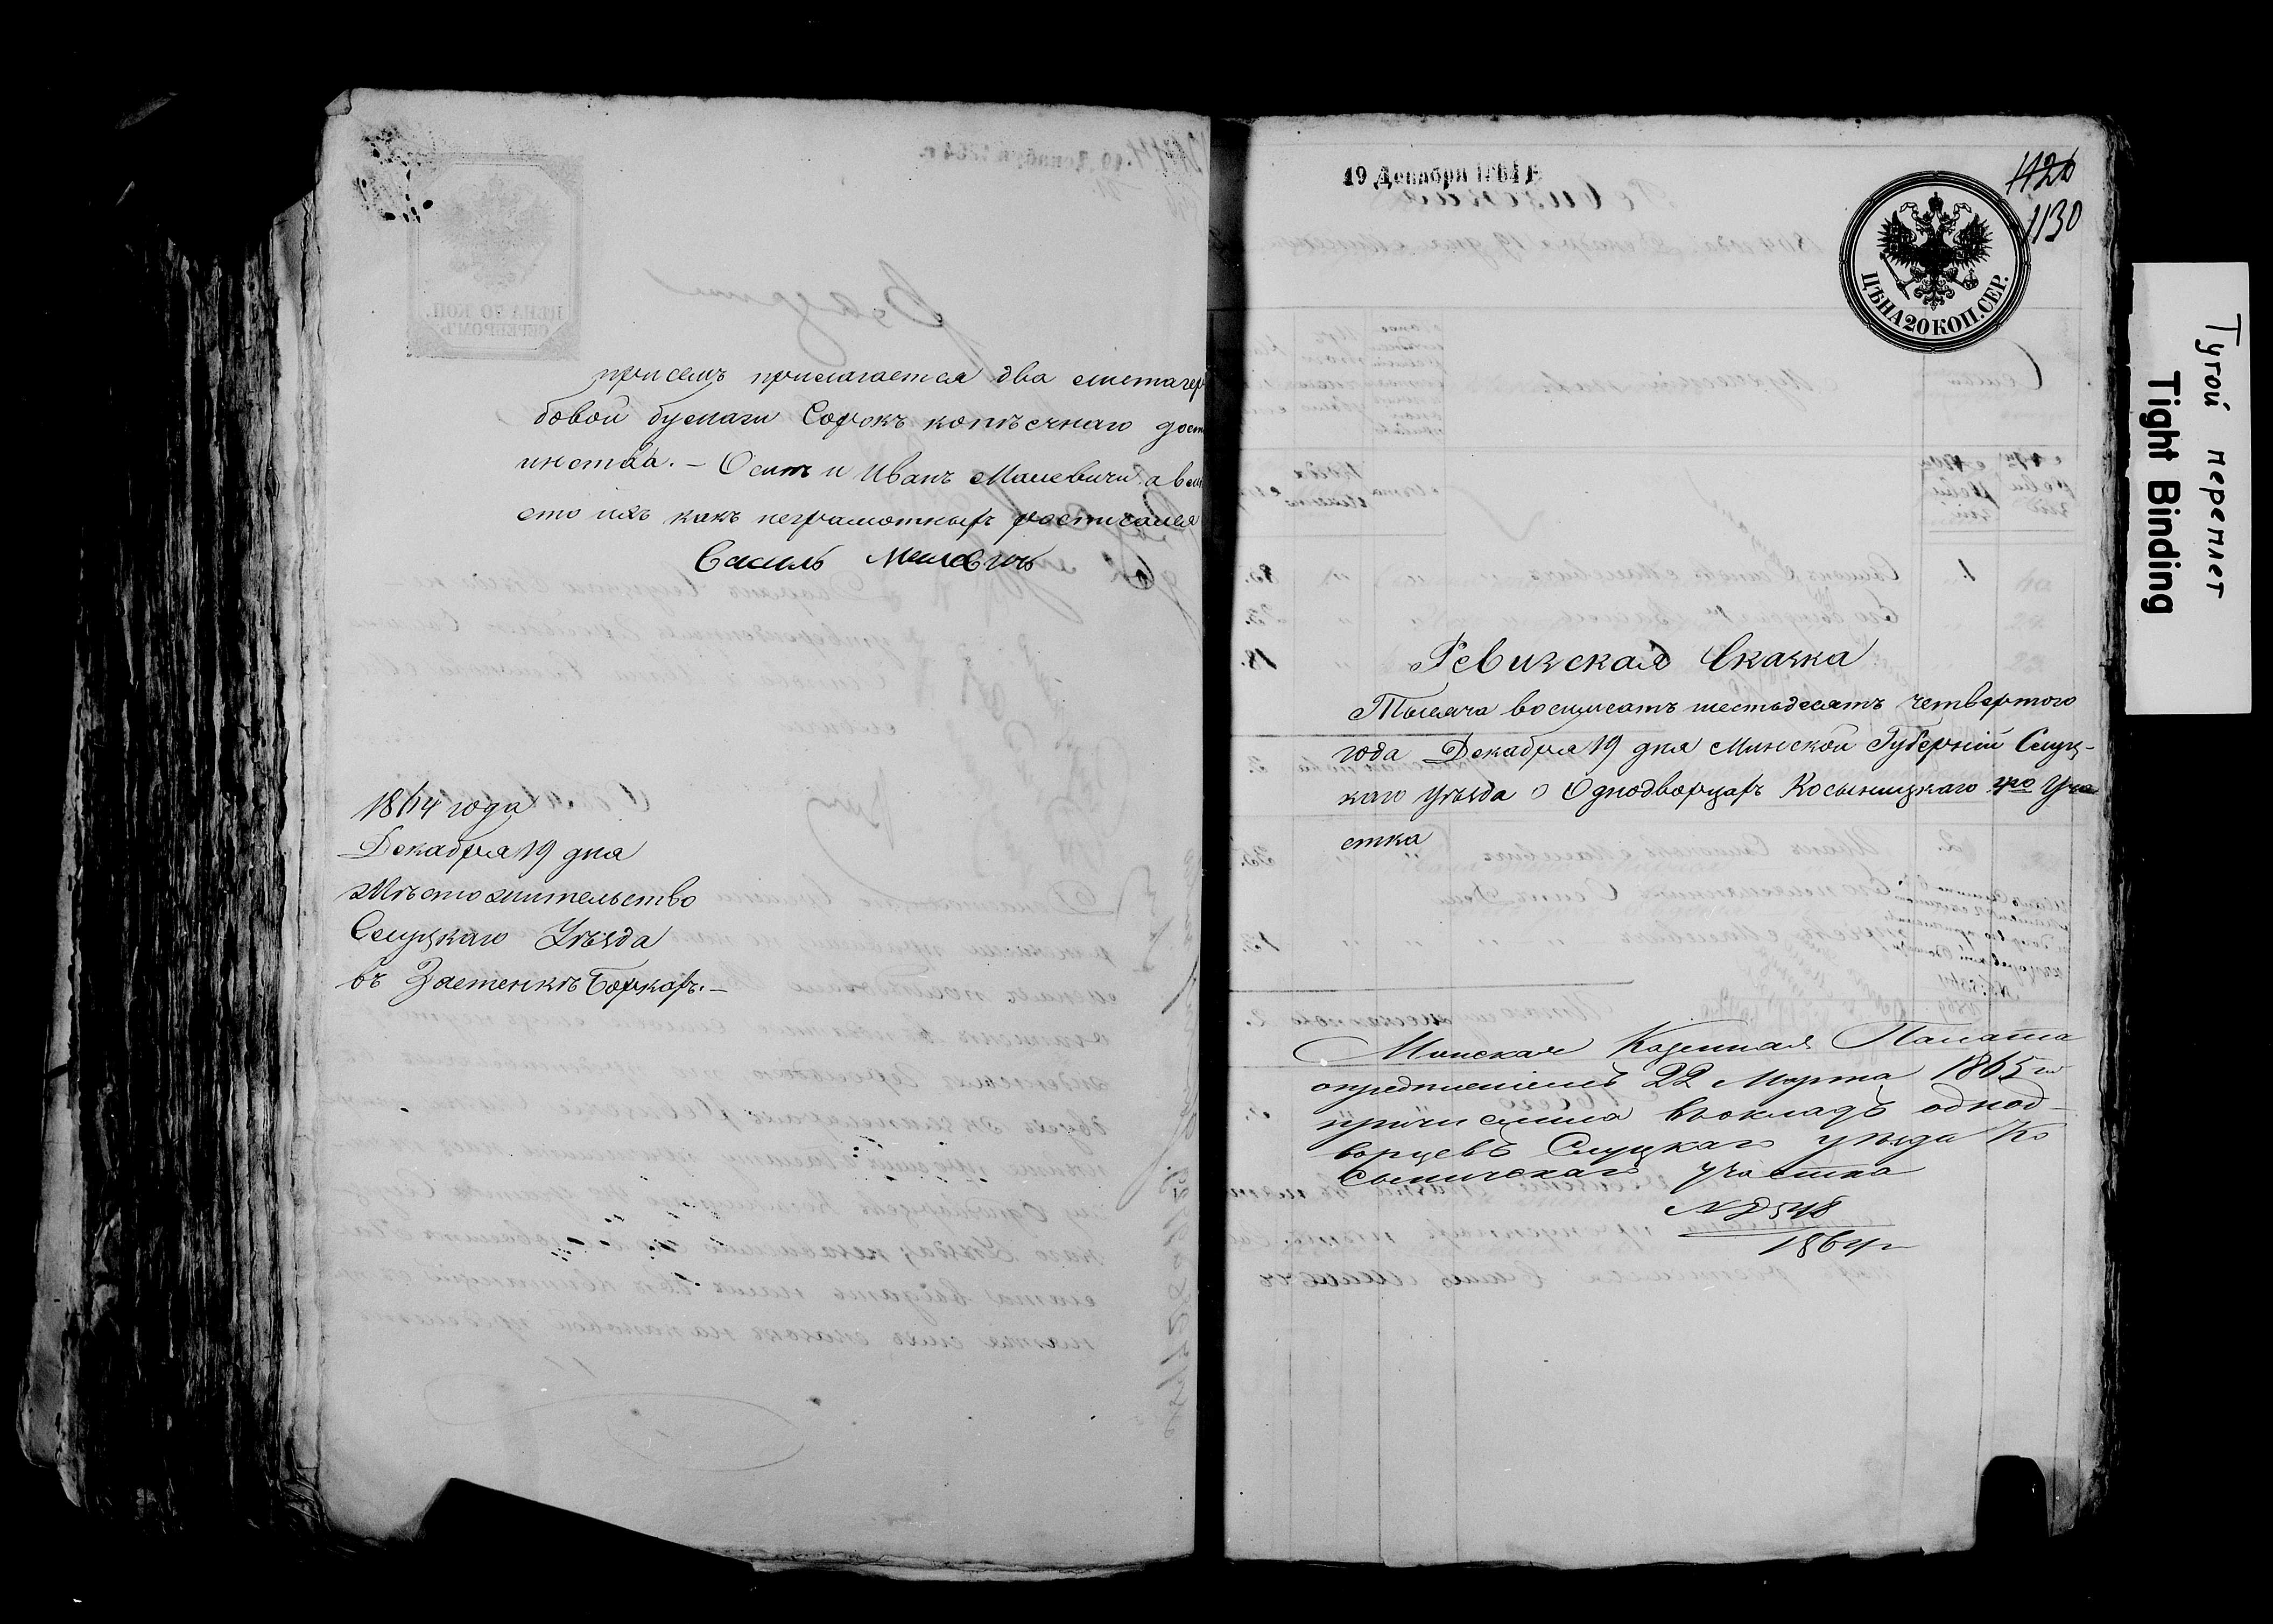 присемъ прилагается два листа гер
бовой бумаги Сорокъ копѣечнаго дост
инства. – Осипъ и Иванъ Малевичи а вм
сто ихъ какъ неграмотныхъ росписался
Василь Малевичъ
1864 года
Декабря 19 дня
Мѣстожительство
Слуцкаго Уѣзда
въ Застенкѣ Боркахъ. –
19 Декабря 1864 г.
1120
1130
ЦѢНА 20 КОП. СЕР.
Ревизская Сказка
Тысяча восмисатъ шестьдесятъ четвертого
года Декабря 19 дня Минской Губерніи Слуц-
каго уѣзда о Однодворцахъ Косыницкаго 4го Уча
стка
Минская Казенная Палата
опредѣленіемъ 22 Марта 1865 г
причислила въ окладъ однод-
ворцевъ Слуцкаго уѣзда Ко
сыничскаго участка
1864 г
Тугой переплет
Tight Binding